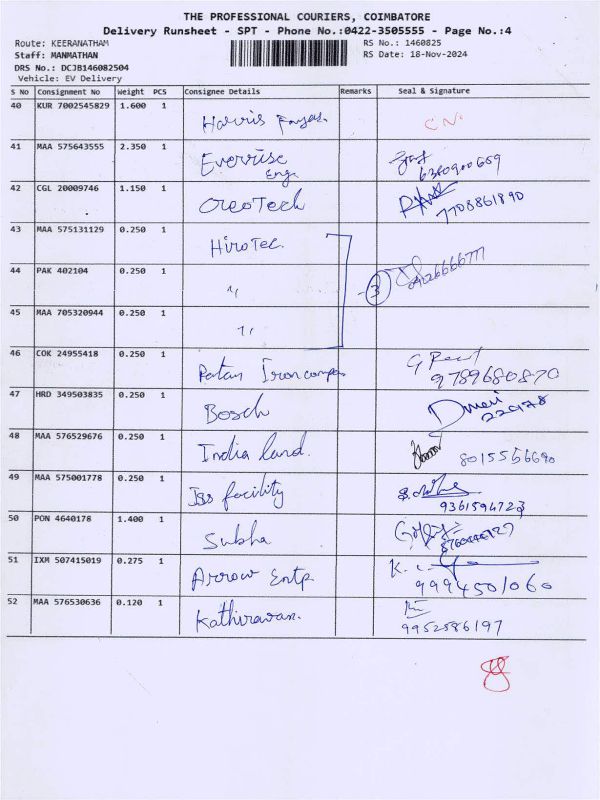 THE PROFESSIONAL COURIERS, COIMBATORE
Delivery Runsheet - SPT - Phone No.:0422-3505555 - Page No.:4
Route: KEERANATHAM RS No.: 1460825
Staff: MANMATHAN RS Date: 18-Nov-2024
DRS No.: DCJB146082504
Vehicle: EV Delivery
S No Consignment No Weight PCS Consignee Details Remarks Seal & Signature
40 KUR 7002545829 1.600 1 Harris CN
41 MAA 575643555 2.350 1 Everrise
Engs
42 CGL 20009746 1.150 1 OreoTech 7708861890
43 MAA 575131129 0.250 1 HiroTec.
44 PAK 402104 0.250 1 " 3
45 MAA 705320944 0.250 1 "
46 COK 24955418 0.250 1 Patan Iron 9789680870
47 HRD 349503835 0.250 1 Bosch
48 MAA 576529676 0.250 1 India land. 8015556690
49 MAA 575001778 0.250 1 Iss facility 9361594723
50 PON 4640178 1.400 1 Subha
51 IXM 507415019 0.275 1 Arrow Entp 9994501060
52 MAA 576530636 0.120 1 Kathiravan. 9952586197